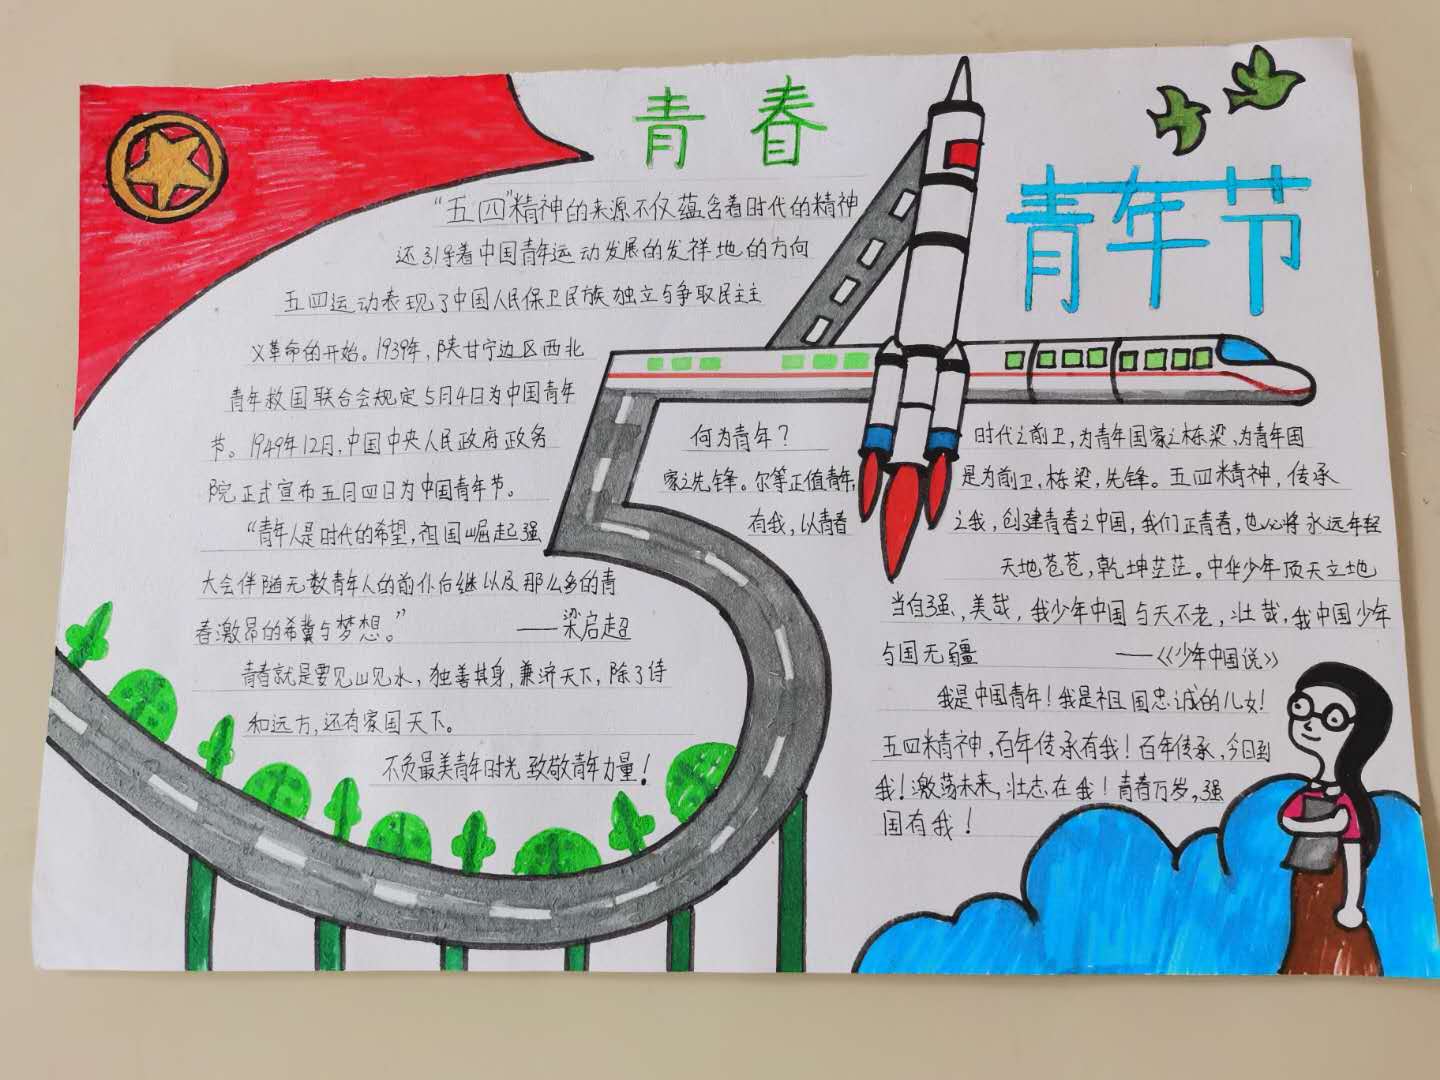 青春
青年节
“五四”精神的来源不仅蕴含着时代的精神
还引导着中国青年运动发展的发祥地的方向
五四运动表现了中国人民保卫民族独立与争取民主主
义革命的开始。1939年,陕甘宁边区西北
青年救国联合会规定5月4日为中国青年
节。1949年12月,中国中央人民政府政务
院正式宣布五月四日为中国青年节。
“青年人是时代的希望,祖国崛起强
大会伴随无数青年人的前仆后继以及那么多的青
春激昂的希冀与梦想。”——梁启超
青春就是要见山见水,独善其身,兼济天下,除了诗
和远方,还有家国天下。
不负最美青年时光 致敬青年力量!
何为青年?
家之先锋。尔等正值青年,
有我,以青春
时代之前卫,为青年国家之栋梁,为青年国
是为前卫,栋梁,先锋。五四精神,传承
之我,创建青春之中国,我们正青春,也必将永远年轻
天地苍苍,乾坤茫茫。中华少年顶天立地
当自强,美哉,我少年中国与天不老,壮哉,我中国少年
与国无疆 ——《少年中国说》
我是中国青年!我是祖国忠诚的儿女!
五四精神,百年传承有我!百年传承,今日到
我!激荡未来,壮志在我!青春万岁,强
国有我!